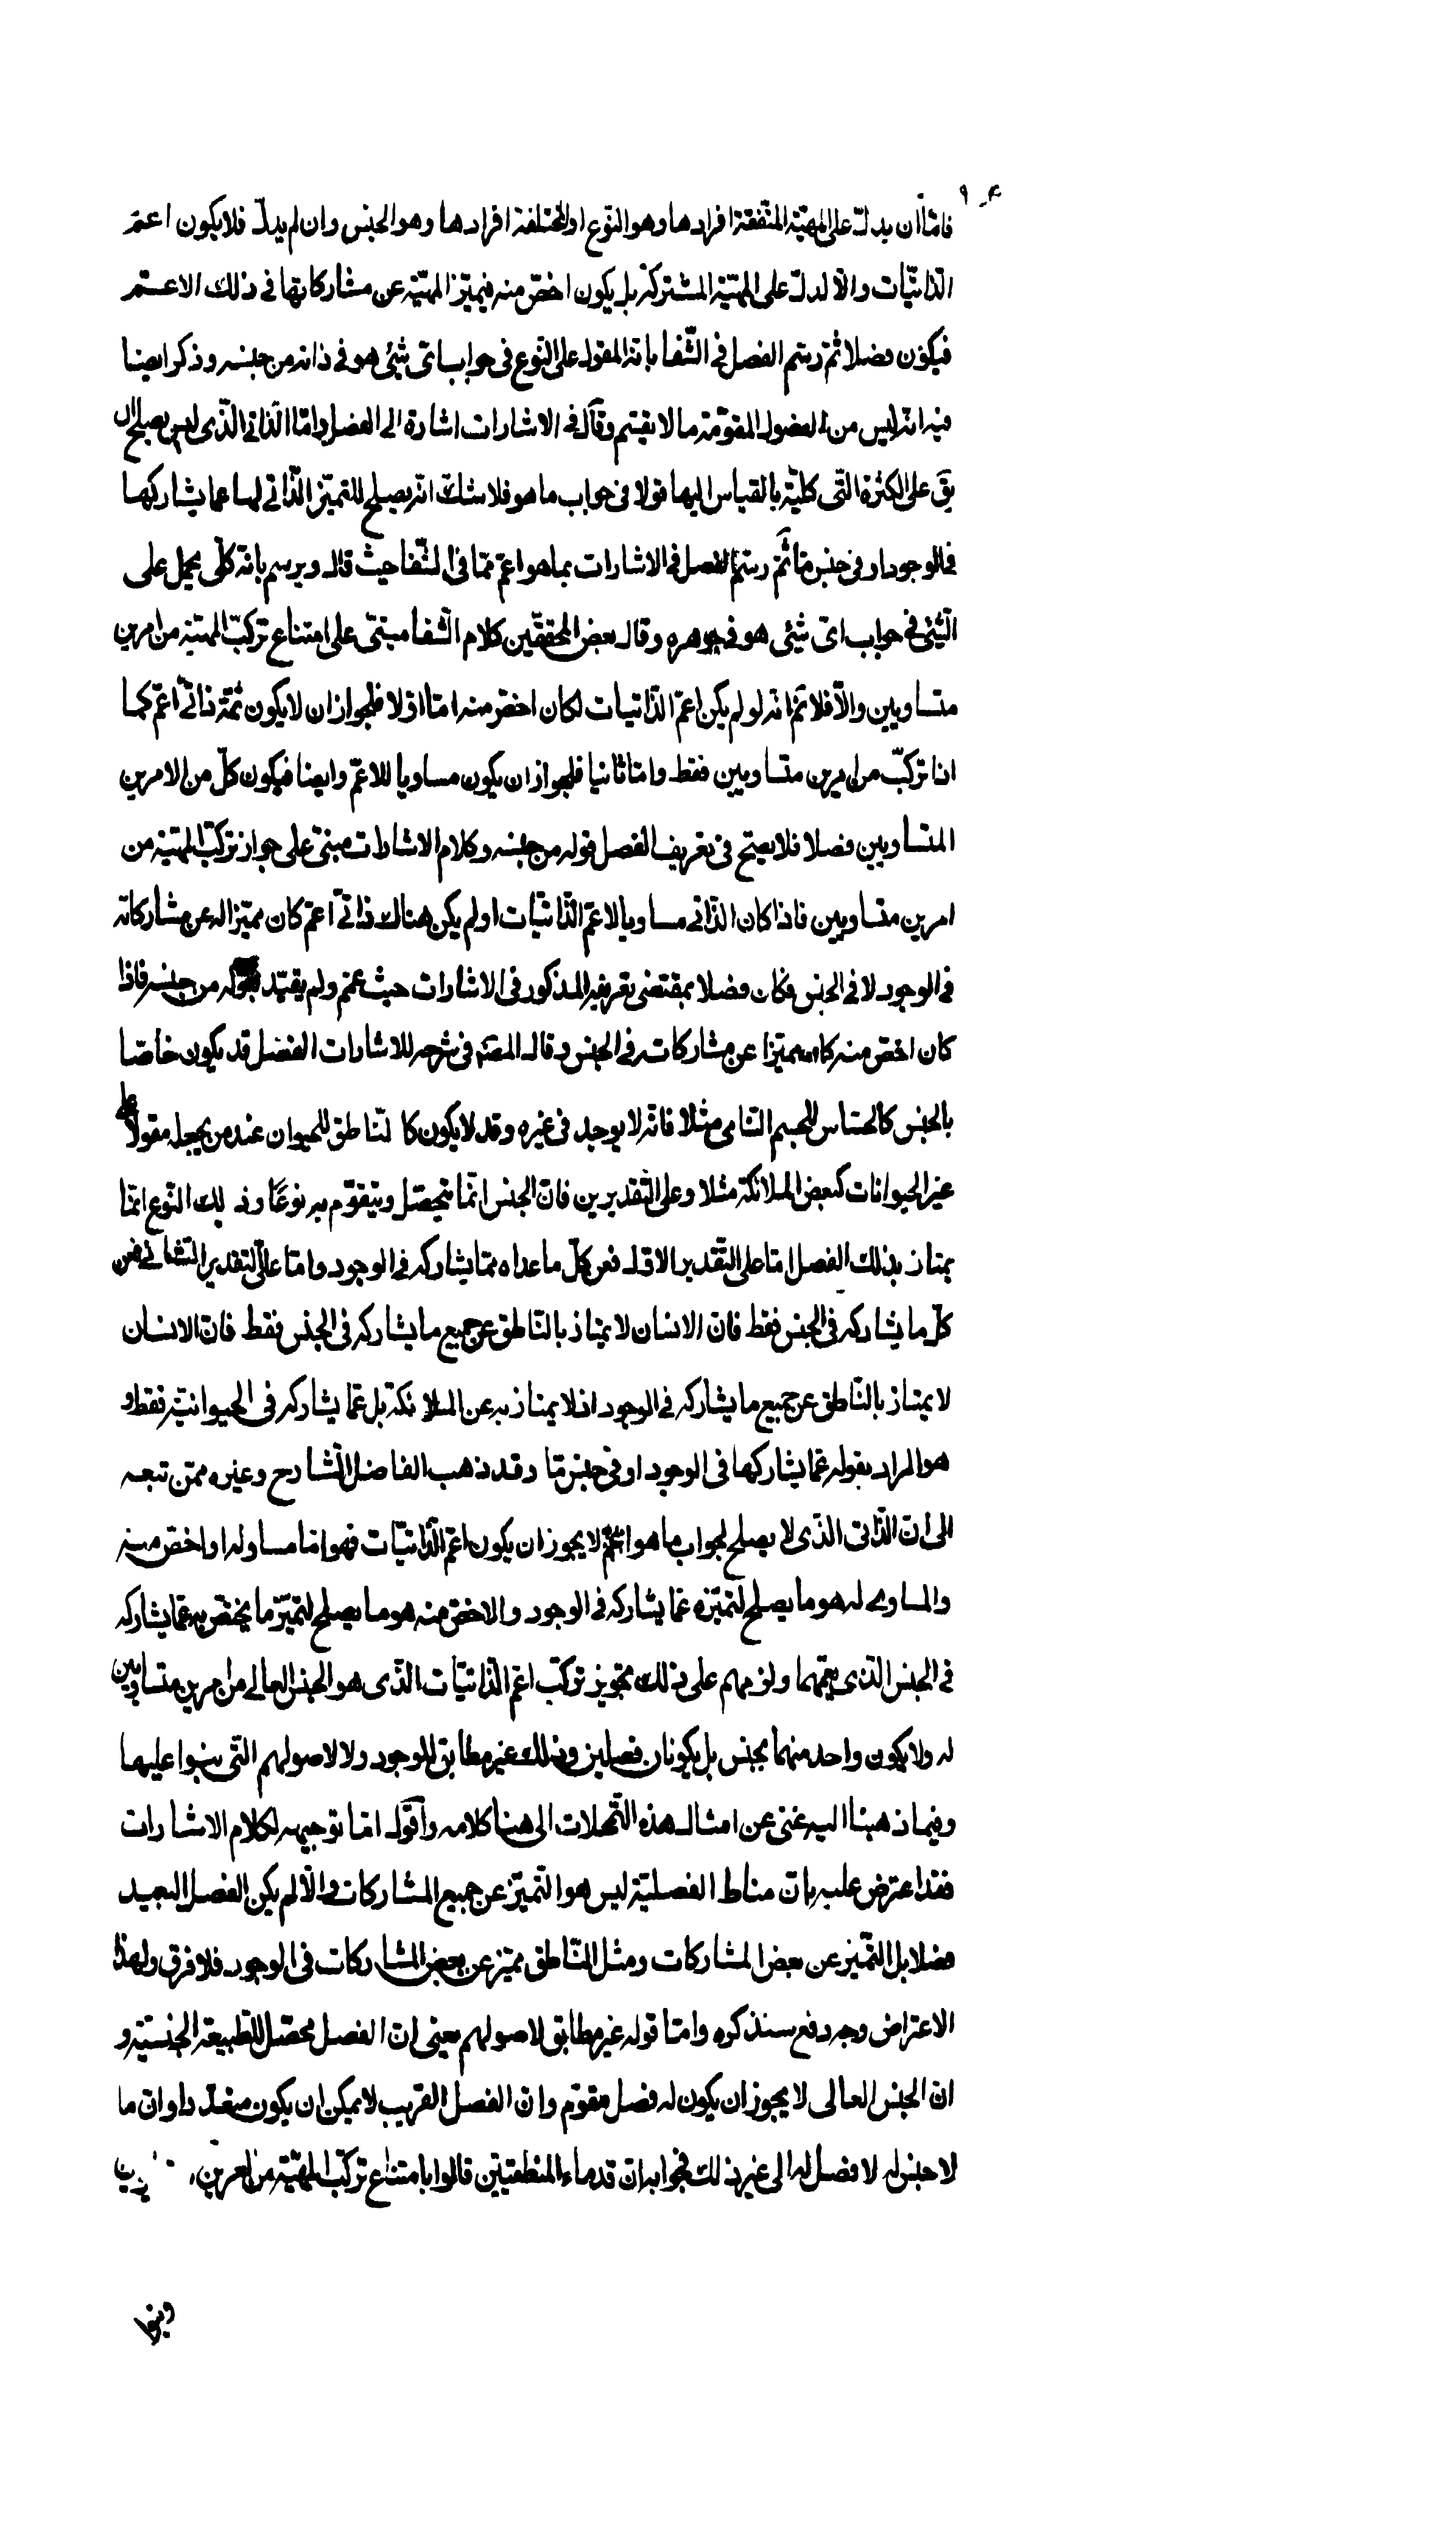 فامّا أن يدلّ على المهيّة المتّفقة افرادها وهو النّوع او المختلفة افرادها وهو الجنس وان لم يدلّ فلا يكون اعمّ
الذاتيّات والّا لدلّ على المهيّة المشتركة بل يكون اخصّ منه فيميّز المهيّة عن مشاركاتها في ذلك الاعمّ
فيكون فصلا ثمّ رسم الفصل في الشّفا بانّه المقول على النّوع في جواب اىّ شيئ هو في ذاته من جنسه وذكر ايضا
فيه انّه ليس من الفصول المقوّمة ما لا يقسّم وقال في الاشارات اشارة الى الفصل وامّا الذّاتي الّذى ليس يصلح ان
يق على الكثرة التى كليّته بالقياس اليها قولا في جواب ما هو فلا شكّ انّه يصلح للتميّز الذّاتي لها عما يشاركها
في الوجود او في جنس ما ثمّ رسم الفصل في الاشارات بما هو اعمّ ممّا في الشّفا حيث قال ويرسم بانّه كلّى يحمل على
الشيئ في جواب اىّ شيئ هو في جوهره وقال بعض المحققّين كلام الشّفا مبنىّ على امتناع تركّب المهيّة من امرين
متساويين والّا فلا تمّ انّه لو لم يكن اعمّ الذّاتيات لكان اخصّ منه امّا اوّلا فلجواز ان لا يكون ثمّة ذاتىّ اعمّ كما
اذا تركّب من امرين متساويين فقط وامّا ثانيا فلجواز ان يكون مساويا للاعمّ وايضا فيكون كلّ من الامرين
المتساويين فصلا فلا يصحّ في تعريف الفصل قوله من جنسه وكلام الاشارات مبنىّ على جواز تركّب المهيّة من
امرين متساويين فاذا كان الذّاتي مساويا لاعمّ الذّاتيّات او لم يكن هناك ذاتىّ اعمّ كان مميّزا له عن مشاركاته
في الوجود لا في الجنس فكان فصلا بمقتضى تعريفه المذكور في الاشارات حيث عمّم ولم يقيّد بقوله من جنسه فاذا
كان اخصّ منه كان مميّزا عن مشاركاته في الجنس وقال المصنّف في شرحه للاشارات الفصل قد يكون خاصّا
بالجنس كالحسّاس للجسم النّامى مثلا فانّه لا يوجد في غيره وقد لا يكون كا لنّاطق للحيوان عند من يجعله مقولا على
غير الحيوانات كبعض الملائكة مثلا وعلى التّقديرين فانّ الجنس انّما يتحصّل ويتقوّم به نوعًا وذلك النّوع انّما
يمتاز بذلك الفصل امّا على التّقدير الاوّل فعن كلّ ما عداه ممّا يشاركه في الوجود وامّا على التّقدير الثّانى فعن
كلّ ما يشاركه في الجنس فقط فانّ الانسان لا يمتاز بالنّاطق عن جميع ما يشاركه في الجنس فقط فانّ الانسان
لا يمتاز بالنّاطق عن جميع ما يشاركه في الوجود اذ لا يمتاز به عن الملائكة بل عمّا يشاركه في الحيوانيّة فقط و
هو المراد بقوله عمّا يشاركها في الوجود او في جنس مّا وقد ذهب الفاضل الشّارح وغيره ممّن تبعه
الى انّ الذّاتى الذّى لا يصلح لجواب ما هو لا يجوز ان يكون اعمّ الذّاتيّات فهو امّا مساو له او اخصّ منه
والمساوى له هو ما يصلح لتميّزه عمّا يشاركه في الوجود والاخصّ منه هو ما يصلح لتميّز ما يختصّ به عمّا يشاركه
في الجنس الذّى يعمّهما ولزمهم على ذلك تجويز تركّب اعمّ الذّاتيّات الذّى هو الجنس العالى من امرين متساويين
له ولا يكون واحد منهما بجنس بل يكونان فصلين وذلك غير مطابق للوجود ولا لاصولهم التّى بنوا عليها
وفيما ذهبنا اليه غنى عن امثال هذه التّمحلات الى هنا كلامه واقول امّا توجيهه لكلام الاشارات
فقد اعترض عليه بانّ مناط الفصليّة ليس هو التّميّز عن جميع المشاركات والّا لم يكن الفصل البعيد
فصلا بل التّميّز عن بعض المشاركات ومثل النّاطق مميّز عن بعض المشاركات في الوجود فلا فرق ولهذا
الاعتراض وجه دفع سنذكره وامّا قوله غير مطابق لاصولهم يعنى انّ الفصل محصّل للطّبيعة الجنسيّة و
انّ الجنس العالى لا يجوز ان يكون له فصل مقوّم وانّ الفصل القريب لا يمكن ان يكون متعدّدا وانّ ما
لا جنس له لا فصل له الى غير ذلك فجوابه انّ قدماء المنطقيّين قالوا بامتناع تركّب المهيّة من امرين